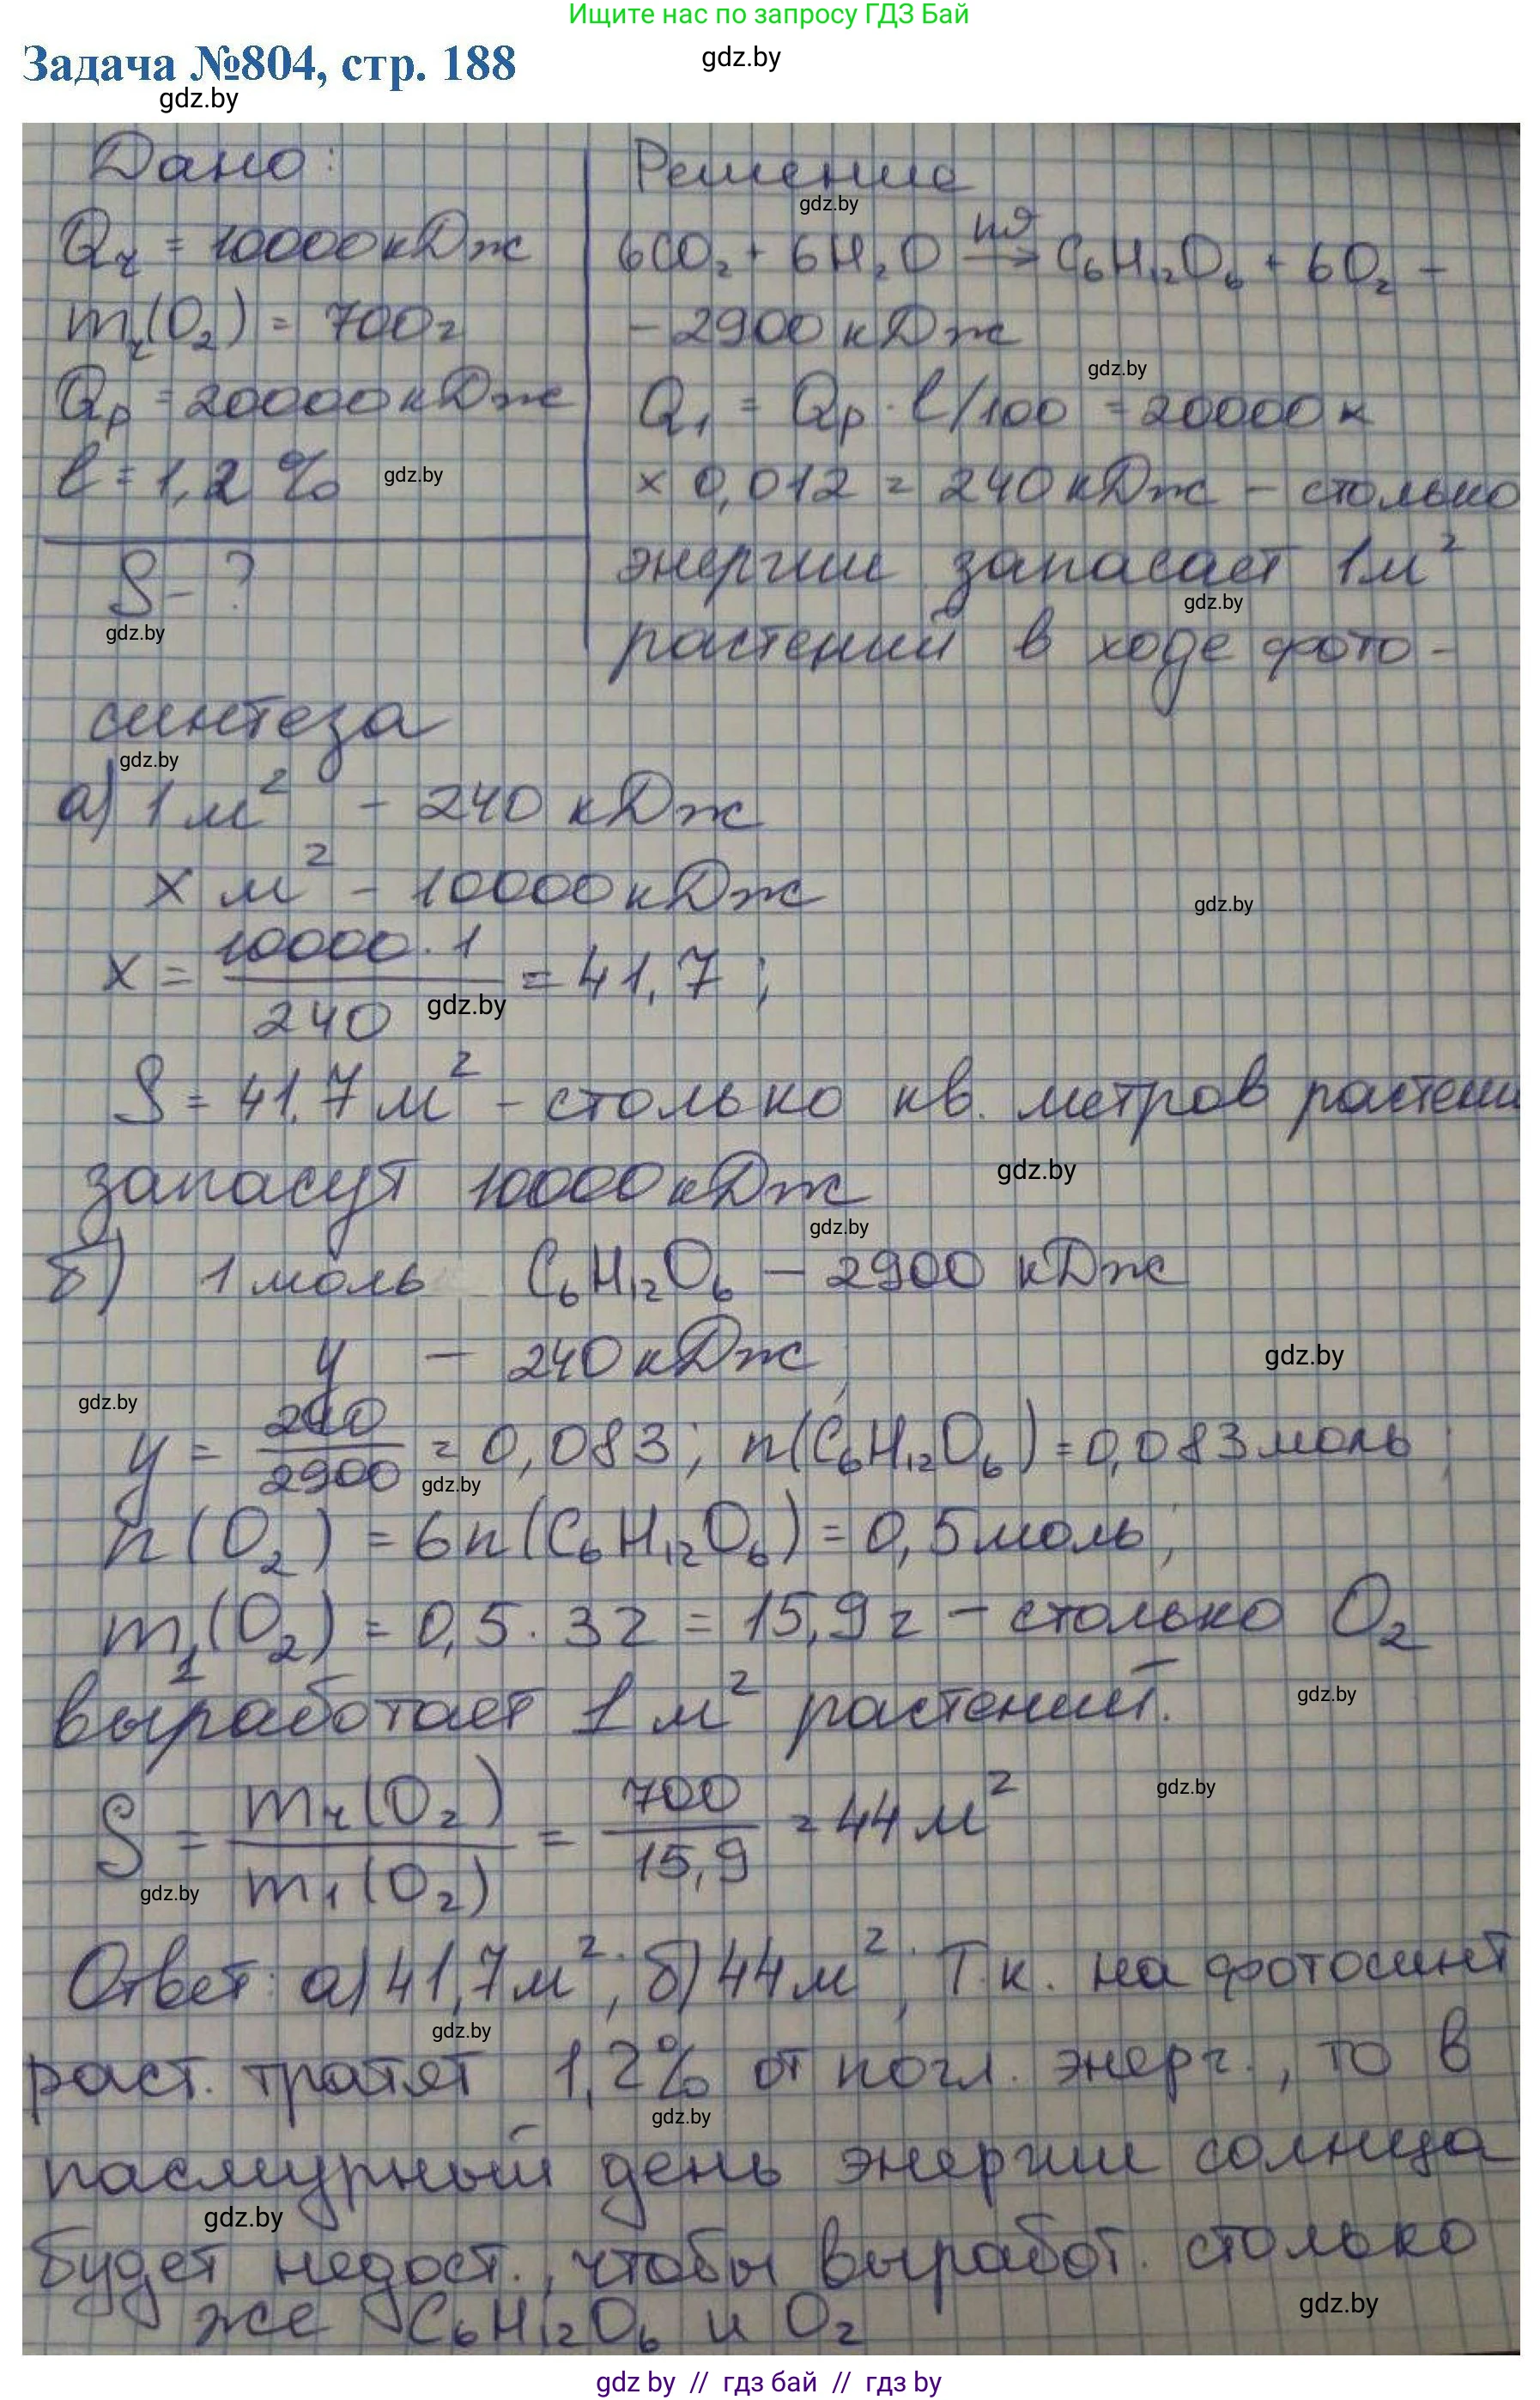 Ищите нас по запросу ГДЗ Бай
Задача №804, стр. 188
gdz.by
gdz.by
Дано:
Qч = 10000 кДж
mч(O₂) = 700г
Qр = 20000 кДж
l = 1,2 %
gdz.by
S - ?
gdz.by
Решение
gdz.by
6CO₂ + 6H₂O hϑ→ C₆H₁₂O₆ + 6O₂ –
– 2900 кДж
gdz.by
Q₁ = Qр · l/100 = 20000 ×
× 0,012 = 240 кДж – столько
энергии запасает 1м²
gdz.by
растений в ходе фото-
синтеза
gdz.by
а) 1 м² – 240 кДж
x м² – 10000 кДж
gdz.by
x = 10000 · 1 / 240 = 41,7 ;
gdz.by
S = 41,7 м² – столько кв. метров растени
запасут 10000 кДж
gdz.by
gdz.by
б) 1 моль C₆H₁₂O₆ – 2900 кДж
y – 240 кДж,
gdz.by
gdz.by
y = 240 / 2900 = 0,083 ; n(C₆H₁₂O₆) = 0,083 моль ;
gdz.by
n(O₂) = 6n(C₆H₁₂O₆) = 0,5 моль ;
m₁(O₂) = 0,5 · 32 = 15,9 г – столько O₂
выработает 1 м² растений.
gdz.by
S = mч(O₂) / m₁(O₂) = 700 / 15,9 = 44 м²
gdz.by
gdz.by
Ответ: а) 41,7 м² ; б) 44 м² , Т.к. на фотосинт
gdz.by
раст. тратят 1,2% от погл. энерг., то в
gdz.by
пасмурный день энергии солнца
gdz.by
будет недост., чтобы выработ. столько
же C₆H₁₂O₆ и O₂
gdz.by
gdz by // гдз бай // гдз by